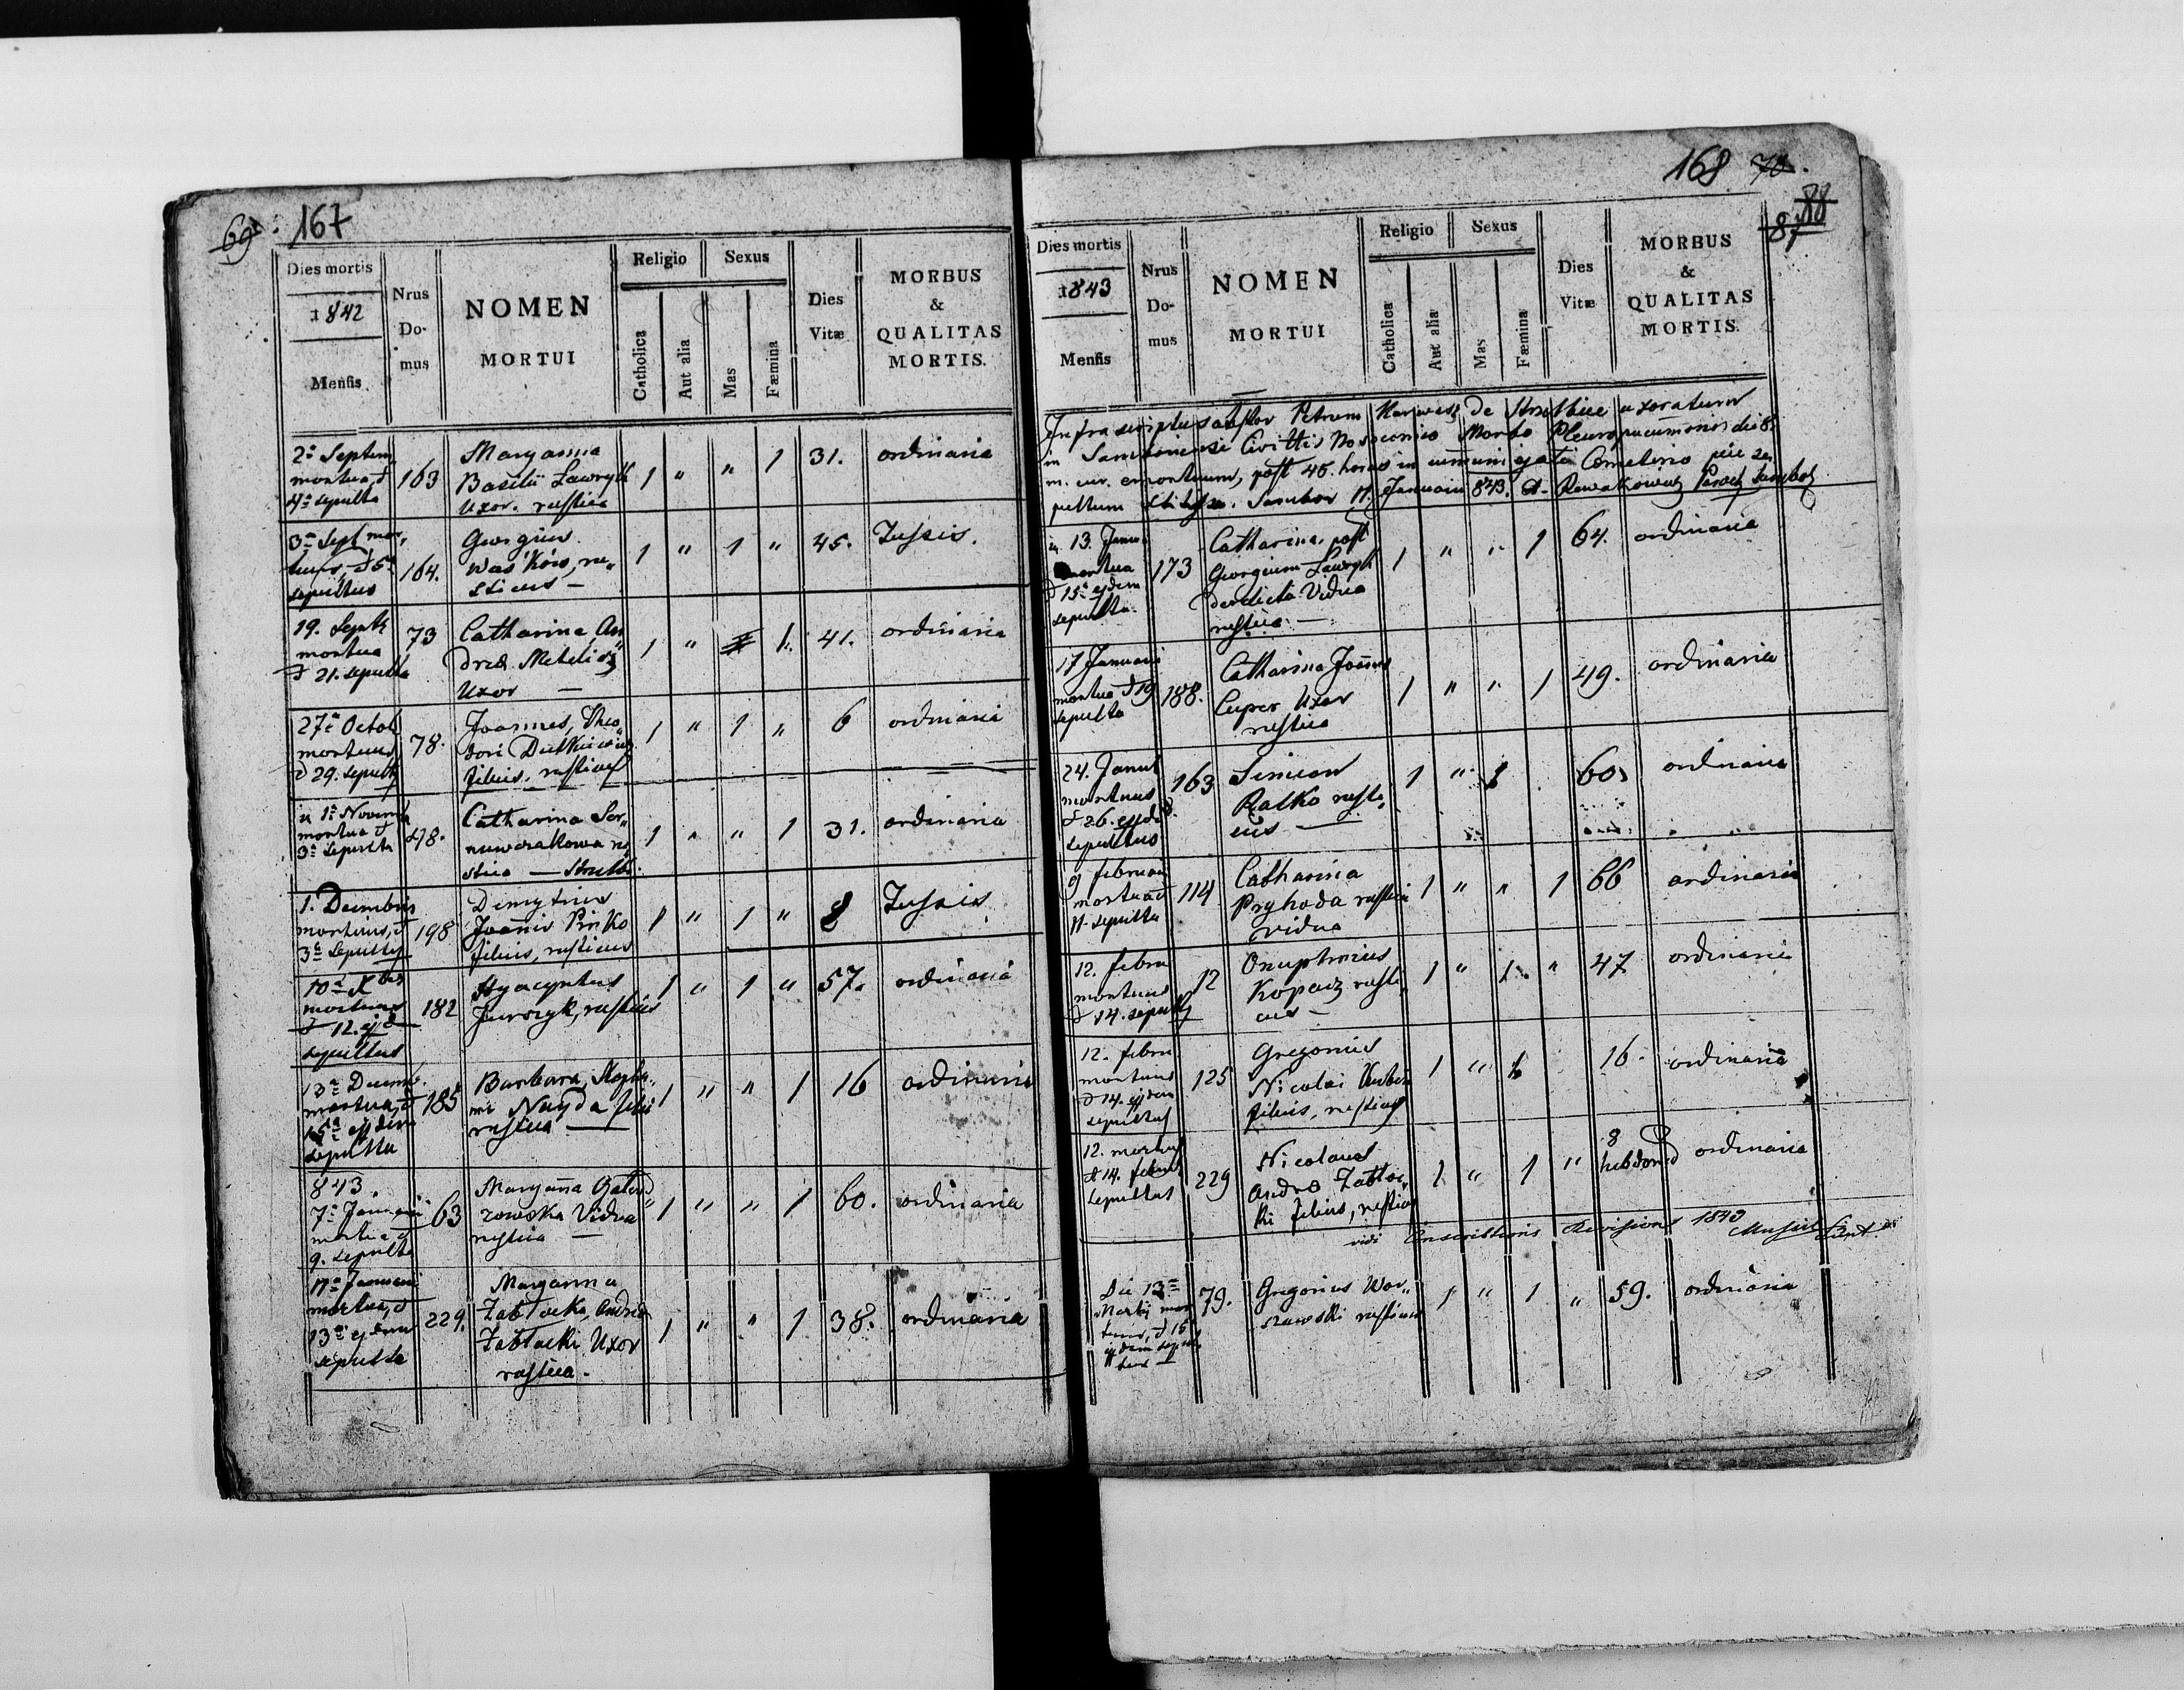 69. 167
Dies mortis
1842
Menſis
Nrus
Do-
mus
NOMEN
MORTUI
Religio
Catholica
Aut alia
Sexus
Mas
Fæmina
Dies
Vitæ
MORBUS
&
QUALITAS
MORTIS.
2a Septem
mortua, d
4a sepulta
163
Maryanna
Basilii Lawryk
Uxor. rustica
1 " " 1 31. ordinaria
3a Sept mor„
tuus, d 5a
sepultus
164.
Georgius
Waśków, ru„
sticus —
1 " 1 " 45. Tussis.
19. Septb
mortua
d 21. sepulta
73
Catharina An„
dreæ
Uxor —
1 " 1. 41. ordinaria
27a Octob
mortuus
d 29. sepult
78.
Joannes, Theo„
dori Dutkiewicz
filius, rusticus
1 " 1 " 6 ordinaria
1a Novemb
mortua d
3a sepulta
78.
Catharina Ser„
stica —
1 " " 1 31. ordinaria
1. Decembris
mortuus, d
3a sepultus
198
Demytrius
Joannis Pińko
filius, rusticus
1 " 1 " 8 Tussis
10a Xbris
mortuus
d 12. ejd
sepultus
182
Hyacyntus
Jurczyk, rusticus
1 " 1 " 57. ordinaria
13a Decemb.
mortua, d
15a ejdem
sepulta
185
Barbara, Stepha„
ni Nayda filia
rustica —
1 " " 1 16 ordinaria
843
7a Januarii
mortua d
9. sepulta
63
Maryanna
Vidua
rustica —
1 " " 1 60. ordinaria
11a Januarii
mortua, d
13a ejdem
sepulta
229.
Maryanna
Zabłocka, Andreæ
Zabłocki Uxor
rustica.
1 " " 1 38. ordinaria
168 70.
88
87
Dies mortis
1843
Menſis
Nrus
Do-
mus
NOMEN
MORTUI
Religio
Catholica
Aut alia
Sexus
Mas
Fæmina
Dies
Vitæ
MORBUS
&
QUALITAS
MORTIS.
Infrascriptus Petrum de uxoratum
in Samboriensi Morbo die 8.
m. cur. emortuum, post 48. horas in Cemeterio se„
pultum Sambor 11. Januarii 843.
13. Janu
mortua
d 15a ejdem
sepulta.
173
Catharina, post
Georgium Lawryk
derelicta Vidua
rustica —
1 " " 1 64. ordinaria
17 Januarii
mortua d 19
sepulta
188.
Catharina Joannis
Cuper Uxor
rustica
1 " " 1 49. ordinaria
24. Janu
mortuus
d 26. ejd
sepultus
163
Simeon
Ratko rusti„
cus —
1 " 1 60 ordinaria
9 februarii
mortua d
11. sepulta
114
Catharina
Pryhoda rustica
vidua
1 " " 1 66 ordinaria
12. febru
mortuus
d 14. sepult
12
Onuphrius
Kopacz rusti„
cus —
1 " 1 " 47 ordinaria
12. febru
mortuus
d 14. ejdem
sepultus
125
Gregorius
Nicolai
filius, rusticus
1 " 1 16. ordinaria
12. mortuus
d 14. februa
sepultus
229
Nicolaus
Andreæ Zabłoc„
ki filius, rusticus
1 " 1 " 8 hebdomad ordinaria
vidi Conscriptionis Revisions 1843
Die 13a
Martij mor
tuus, d 15
ejdem sepul
tus —
79.
Gregorius War„
szawski rusticus
1 " 1 " 59. ordinaria